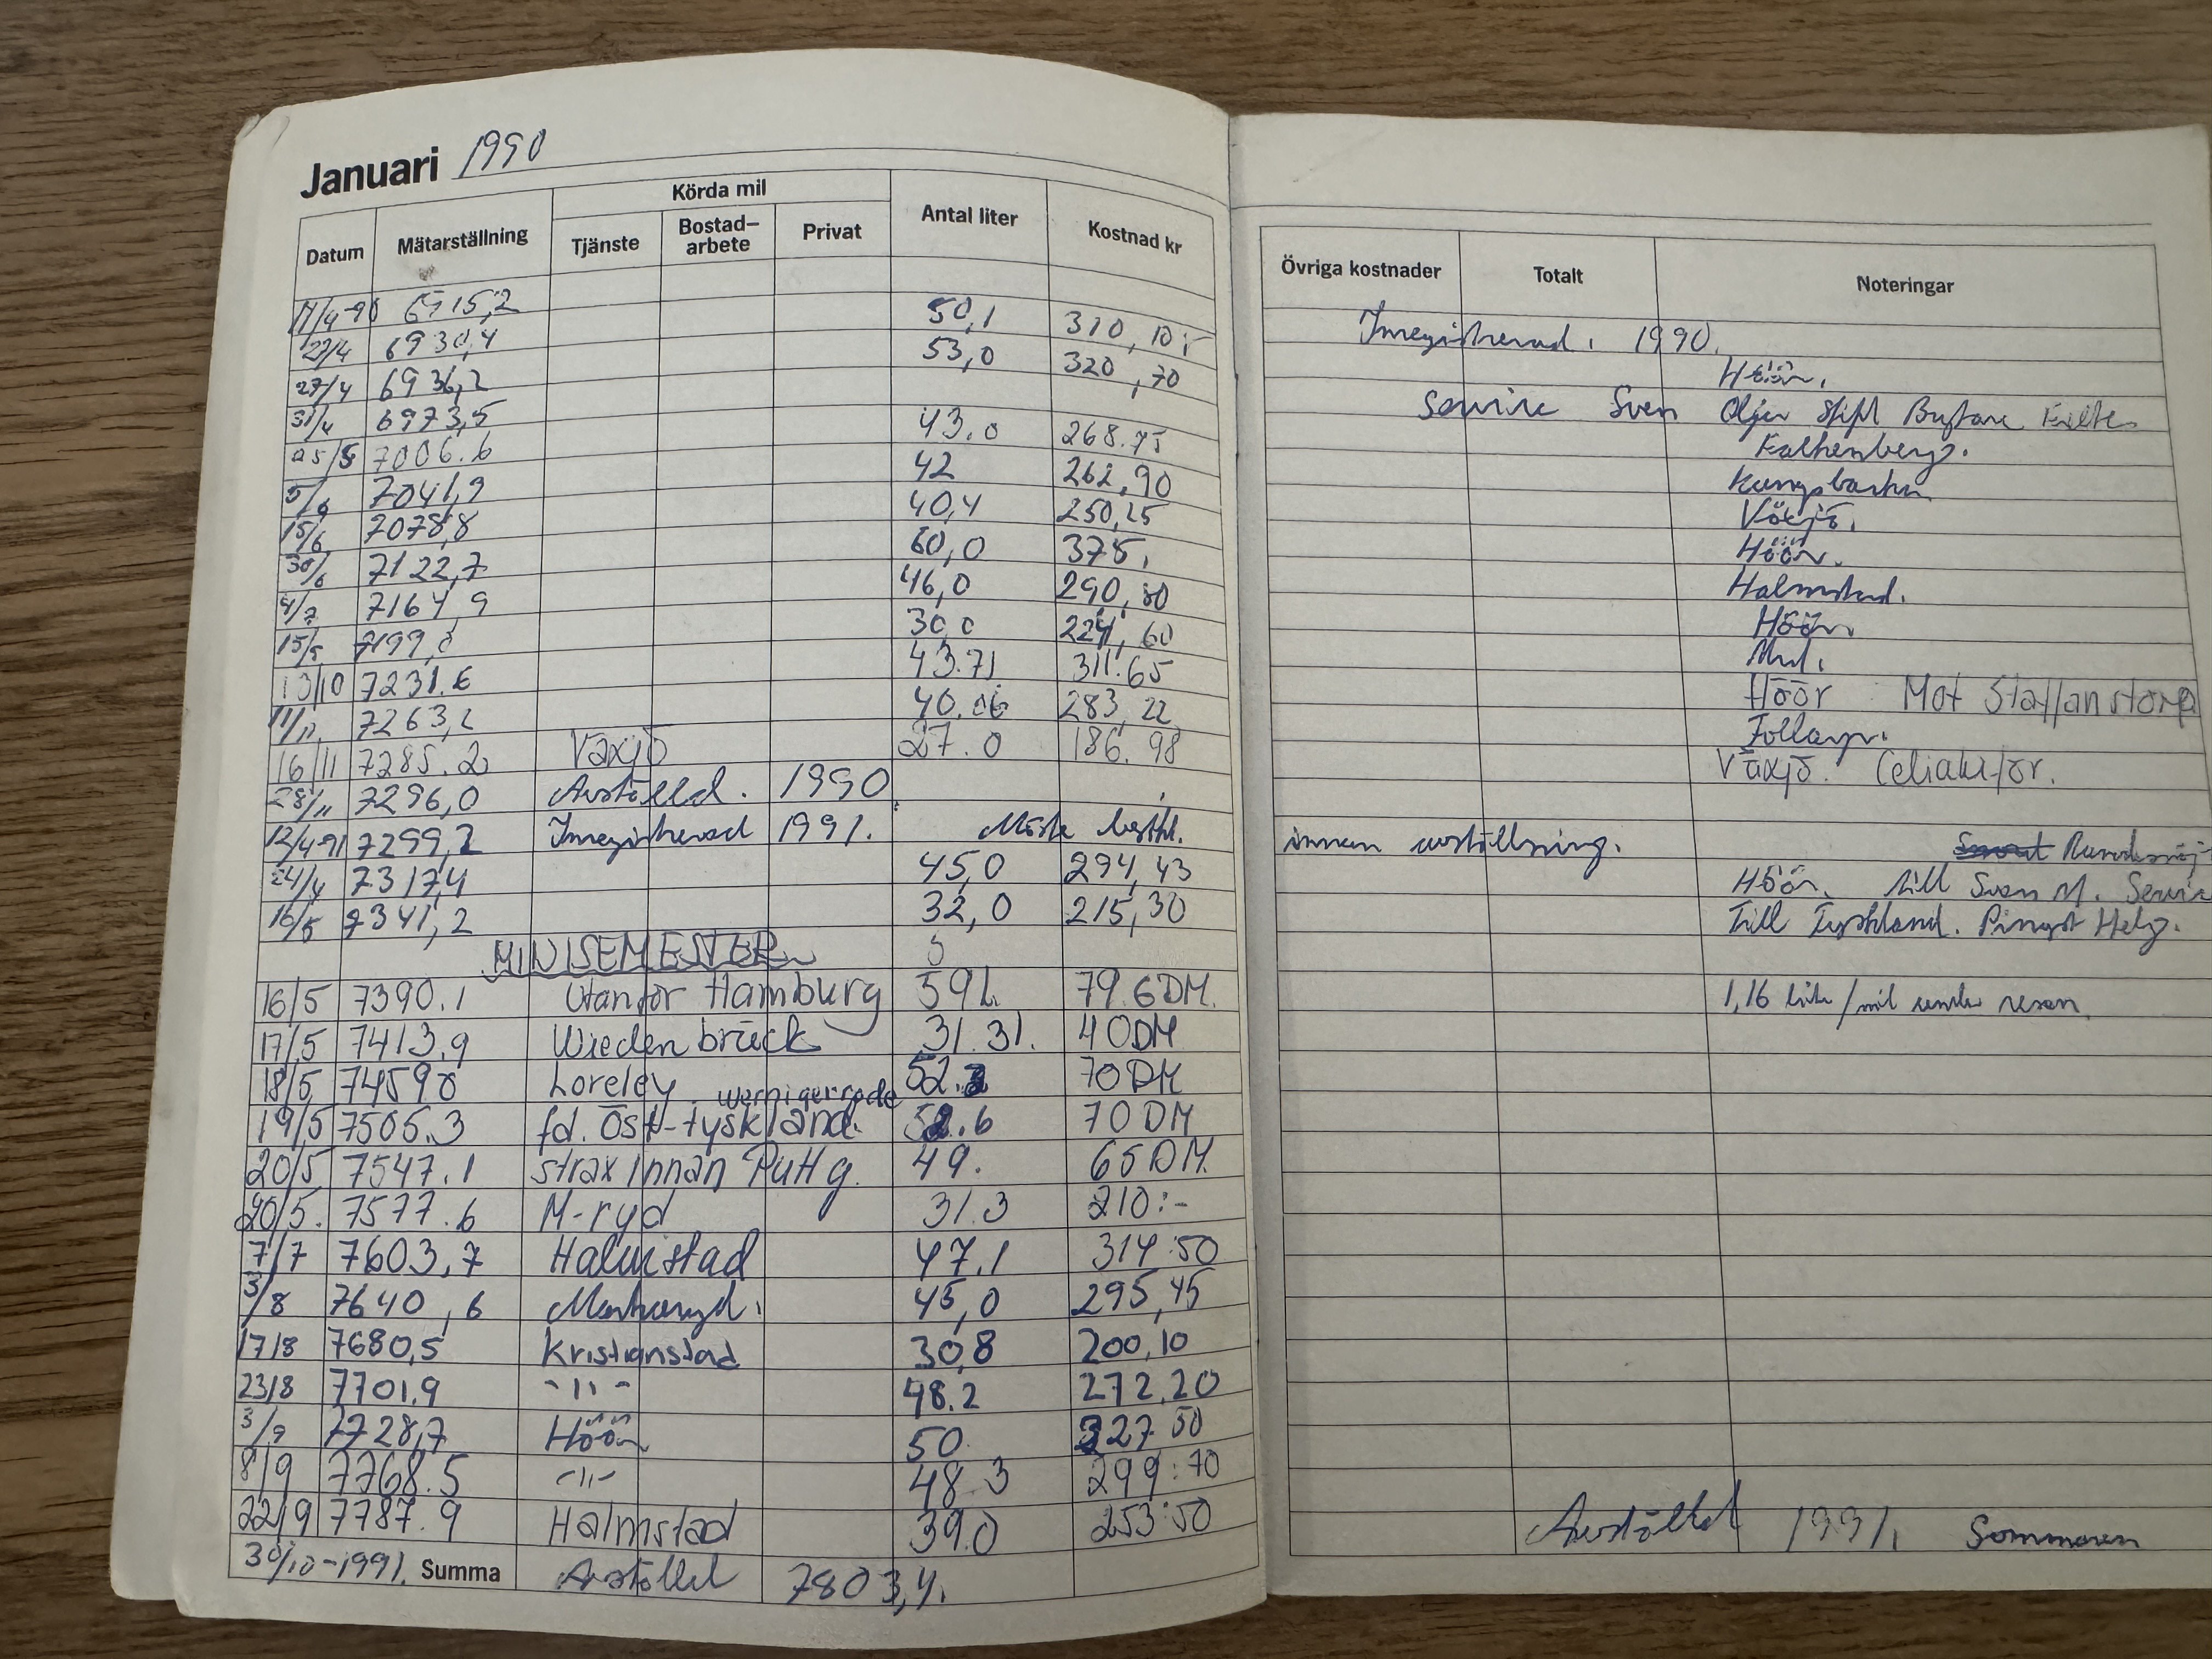 Januari 1990
Körda mil
Datum Mätarställning Tjänste Bostad–arbete Privat Antal liter Kostnad kr Övriga kostnader Totalt Noteringar
6915,2 50,1 310,10:- Inregistrerad. 1990.
27/4 6930,4 53,0 320,70 Höör.
27/4 6936,2 Service Sven Oljor Stift Brytare
6973,5 43.0 268.75 Falkenberg.
7006.6 42 262,90 Kungsbacka
5/6 7041,9 40,4 250,25 Växjö.
15/6 7078,8 60,0 375, Höör.
30/6 7122,7 46,0 290,80 Halmstad.
4/7 7164,9 30,0 224,60 Höör.
7199,0 43.71 311.65
13/10 7231.6 40.06 283,22 Höör Mot Staffanstorp
11/11 7263,2 27.0 186.98
16/11 7285.2 Växjö Växjö.
28/11 7296,0 Avställd. 1990
12/4-91 7299,2 Inregistrerad 1991. Måste innan avställning.
24/4 7317,4 45,0 294,43 Höör. till Sven M. Service
16/5 7341,2 32,0 215,30 Till Tyskland. Pingst Helg.
MINISEMESTER
16/5 7390.1 Utanför Hamburg 59 L. 79.6 DM. 1,16 liter/mil under resan.
17/5 7413.9 Wiedenbrück 31.31. 40 DM
18/5 7459 0 Loreley 52.3 70 DM
wernigerrode
19/5 7505.3 fd. Öst-tyskland. 52.6 70 DM
20/5 7547.1 strax innan Puttg. 49. 65 DM.
20/5. 7577.6 M-ryd 31.3 210:-
7/7 7603,7 Halmstad 47.1 314:50
3/8 7640,6 Markaryd. 45,0 295,45
17/8 7680,5 Kristianstad 30,8 200,10
23/8 7701.9 -"- 48.2 272.20
3/9 7728,7 Höör 50. 327 50
8/9 7768.5 -"- 48.3 299:70
22/9 7787.9 Halmstad 39.0 253:50 Avställd 1991. Sommaren
30/10-1991. Summa Avställd 7803,4.